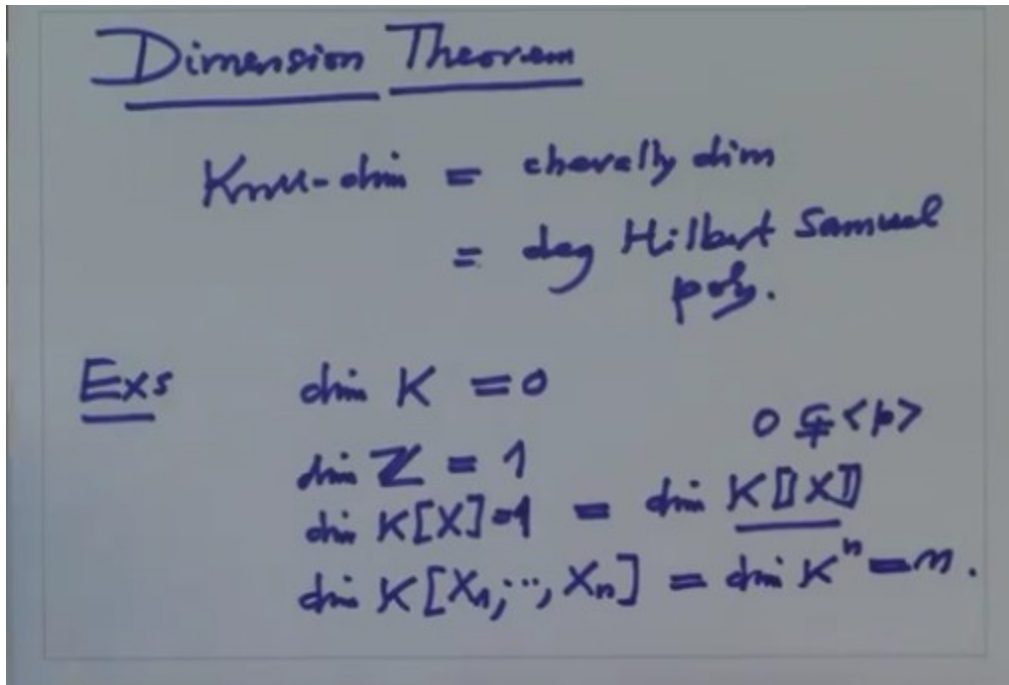 Dimension Theorem
Krull-dim = chevally dim
= deg Hilbert Samuel
poly.
Exs dim K = 0
0 ⊊ <p>
dim ℤ = 1
dim K[X]=1 = dim K⟦X⟧
dim K[X₁,..., Xₙ] = dim Kⁿ = n.